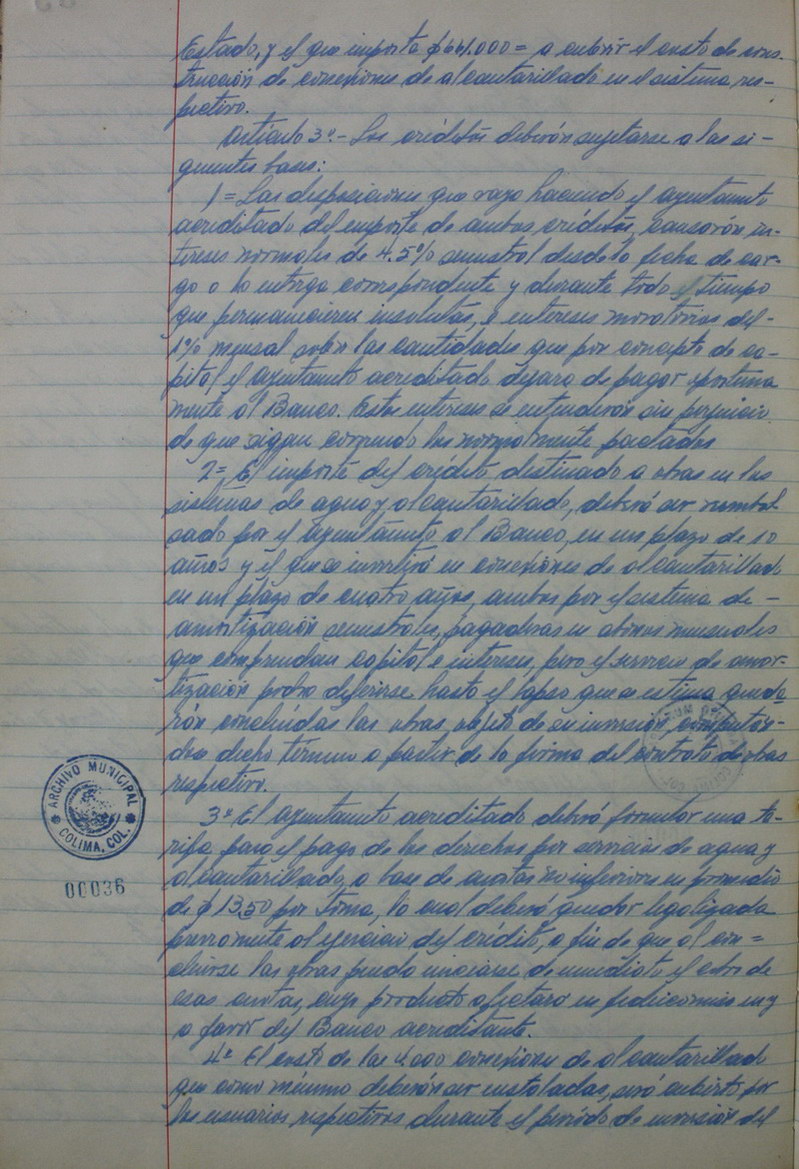 Estado, y el que importa $641.000= a cubrir el costo de cons-
trucción de conexiones de alcantarillado en el sistema res-
pectivo.
Artículo 3º.- Los créditos deberán sujetarse a las si-
guientes bases:
1= Las disposiciones que vaya haciendo el ayuntamiento
acreditado del importe de ambos créditos, causarán in-
tereses normales de 4.5% semestral desde la fecha de car-
go o la entrega correspondiente y durante todo el tiempo
que permanecieren insolutas, e intereses moratorios del-
1% mensal sobre las cantidades que por concepto de ca-
pital, el ayuntamiento acreditado dejara de pagar oportuna
mente al Banco. Estos intereses se entenderán sin perjuicio
de que sigan corriendo los normalmente pactados
2= El importe del crédito destinado a obras en los
sistemas de agua y alcantarillado, deberá ser rembol
sado por el Ayuntamiento al Banco, en un plazo de 10
años y el que se invertirá en conexiones de alcantarillado
en un plazo de cuatro años, ambos por el sistema de-
amortización semestrales, pagaderas en abonos mensuales
que comprendan capital e intereses, pero el servicio de amor-
tización podrá diferirse hasta el lapso que se estima queda-
rán concluidas las obras objeto de su inversión, compután-
dose dicho término a partir de la firma del contrato de obras
respectivo.
3ª El ayuntamiento acreditado deberá formular una ta-
rifa para el pago de los derechos por servicios de agua y
alcantarillado, a base de cuotas no inferiores en promedio
de $13.50 por toma, la cual deberá quedar legalizada
previamente al ejercicio del crédito, a fin de que al con=
cluirse las obras pueda iniciarse de inmediato el cobro de
esas cuotas, cuyo producto afectará en fideicomiso en y
a favor del Banco acreditante.
4ª El costo de las 4.000 conexiones de alcantarillado
que como mínimo deberán ser instaladas, será cubierto por
los usuarios respectivos durante el período de inversión del
ARCHIVO MUNICIPAL
COLIMA, COL.
00036